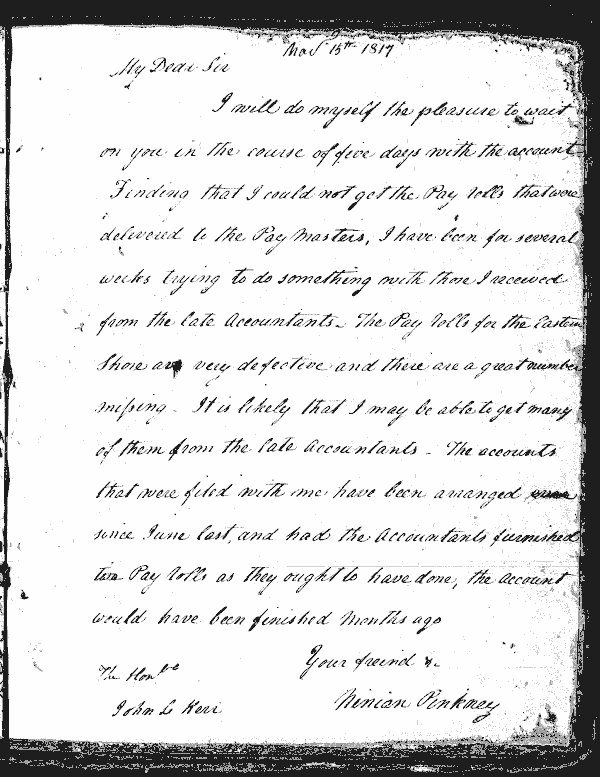 Mar 15th 1817
My Dear Sir
I will do myself the pleasure to wait
on you in the course of five days with the account
Finding that I could not get the Pay rolls that were
delivered to the Pay Masters, I have been for several
weeks trying to do something with those I received
from the late Accountants. The Pay rolls for the Eastern
Shore are very defective and there are a great number
missing. It is likely that I may be able to get many
of them from the late Accountants. The accounts
that were filed with me have been arranged
since June last, and had the Accountants furnished
Pay rolls as they ought to have done, the account
would have been finished Months ago
Your freind &c
The Honble
Ninian Pinkney
John Le Kerr